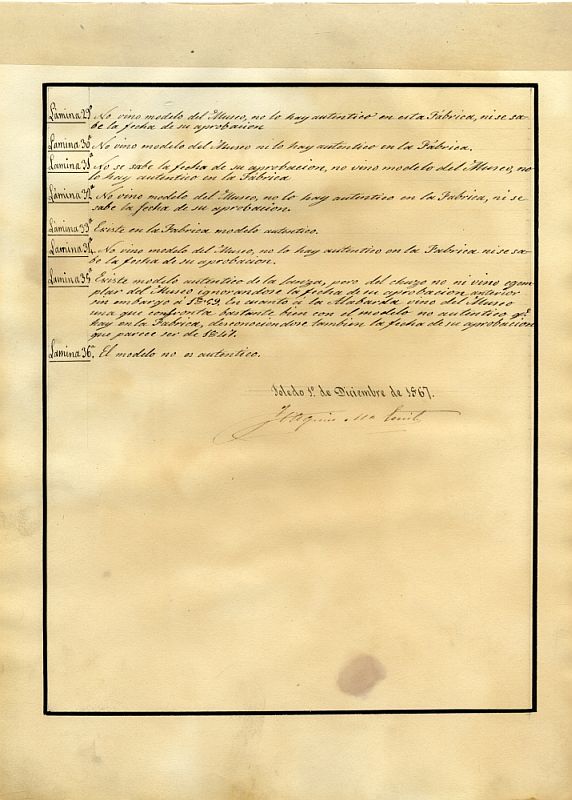 Lamina 29ª No vino modelo del Museo, no lo hay autentico en esta Fábrica, ni se sa-
be la fecha de su aprobacion
Lamina 30ª No vino modelo del Museo ni lo hay autentico en la Fábrica.
Lamina 31ª No se sabe la fecha de su aprobacion, no vino modelo del Museo, no
lo hay autentico en la Fabrica
Lamina 32ª No vino modelo del Museo, no lo hay autentico en la Fabrica, ni se
sabe la fecha de su aprobacion.
Lamina 33ª Existe en la Fabrica modelo autentico.
Lamina 34ª No vino modelo del Museo, no lo hay autentico en la Fabrica ni se sa-
be la fecha de su aprobacion.
Lamina 35ª Existe modelo autentico de la lanza, pero del chuzo no ni vino egem-
plar del Museo ignorandose la fecha de su aprobacion anterior
sin embargo á En cuanto á la Alabarda vino del Museo
una que confronta bastante bien con el modelo no autentico qᵉ
hay en la Fabrica, desconociendose tambien la fecha de su aprobacion
que parece ser de 1847.
Lamina 36ª El modelo no es autentico.
Toledo 1º de Diciembre de 1867.
Joaquin Mª